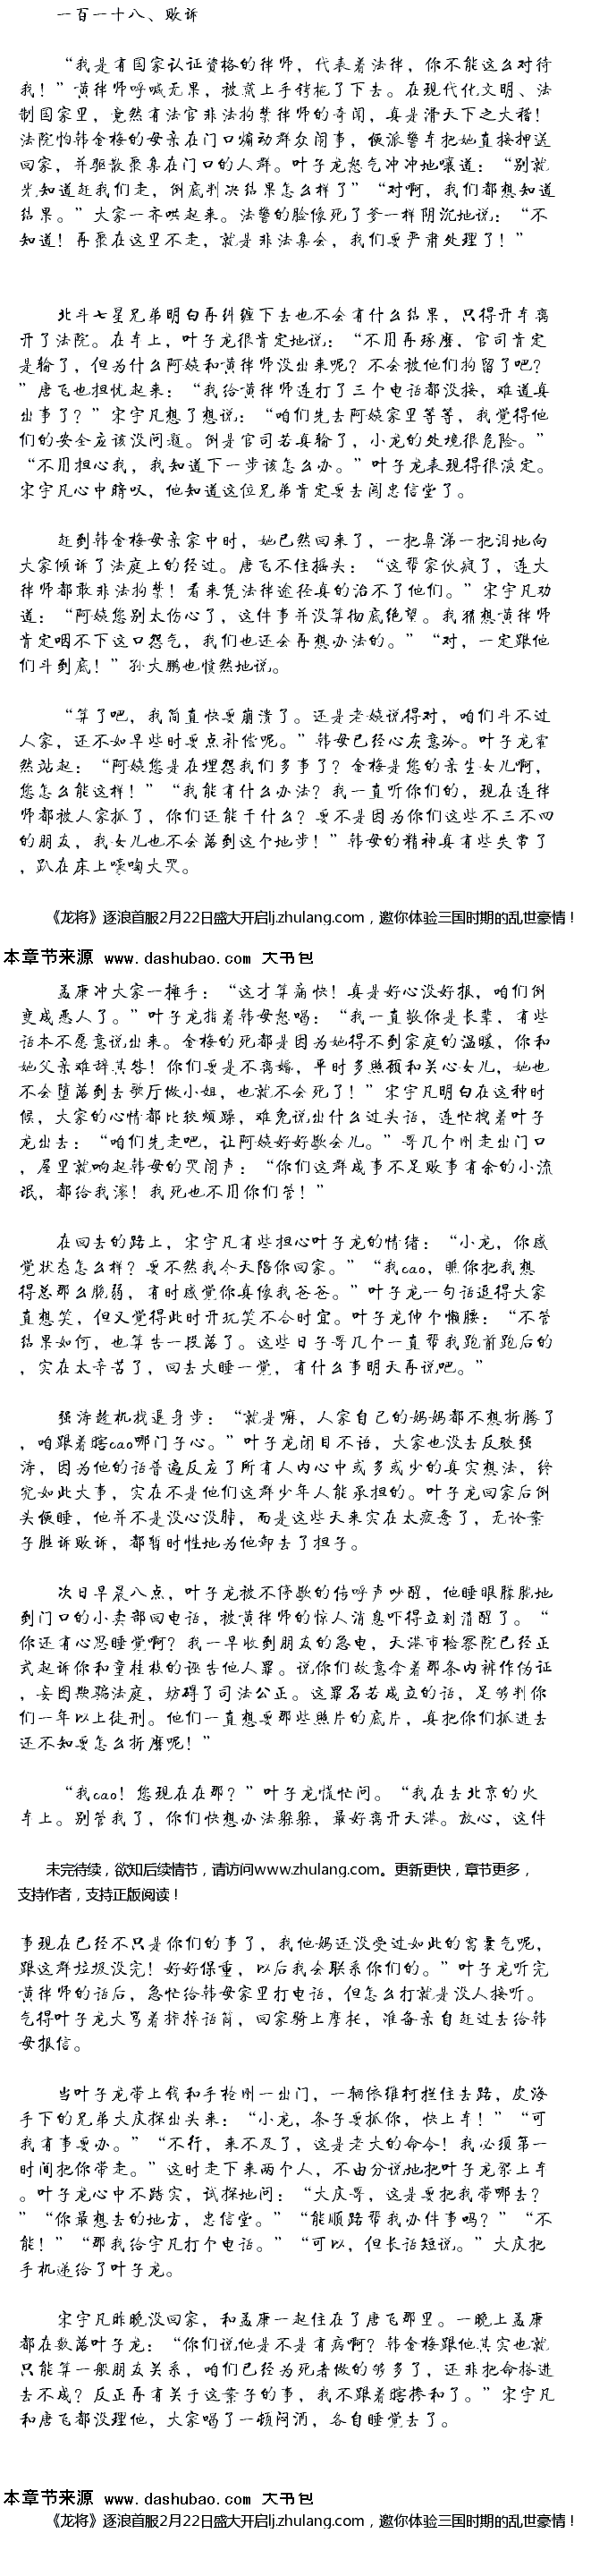 一百一十八、败诉
“我是有国家认证资格的律师，代表着法律，你不能这么对待
我！”黄律师呼喊无果，被戴上手铐拖了下去。在现代化文明、法
制国家里，竟然有法官非法拘禁律师的奇闻，真是滑天下之大稽！
法院怕韩金梅的母亲在门口煽动群众闹事，便派警车把她直接押送
回家，并驱散聚集在门口的人群。叶子龙怒气冲冲地嚷道：“别就
光知道赶我们走，倒底判决结果怎么样了”“对啊，我们都想知道
结果。”大家一齐哄起来。法警的脸像死了爹一样阴沉地说：“不
知道！再聚在这里不走，就是非法集会，我们要严肃处理了！”
北斗七星兄弟明白再纠缠下去也不会有什么结果，只得开车离
开了法院。在车上，叶子龙很肯定地说：“不用再琢磨，官司肯定
是输了，但为什么阿姨和黄律师没出来呢？不会被他们拘留了吧？
”唐飞也担忧起来：“我给黄律师连打了三个电话都没接，难道真
出事了？”宋宇凡想了想说：“咱们先去阿姨家里等等，我觉得他
们的安全应该没问题。倒是官司若真输了，小龙的处境很危险。”
“不用担心我，我知道下一步该怎么办。”叶子龙表现得很淡定。
宋宇凡心中暗叹，他知道这位兄弟肯定要去闯忠信堂了。
赶到韩金梅母亲家中时，她已然回来了，一把鼻涕一把泪地向
大家倾诉了法庭上的经过。唐飞不住摇头：“这帮家伙疯了，连大
律师都敢非法拘禁！看来凭法律途径真的治不了他们。”宋宇凡劝
道：“阿姨您别太伤心了，这件事并没算彻底绝望。我猜想黄律师
肯定咽不下这口怨气，我们也还会再想办法的。”“对，一定跟他
们斗到底！”孙大鹏也愤然地说。
“算了吧，我简直快要崩溃了。还是老姨说得对，咱们斗不过
人家，还不如早些时要点补偿呢。”韩母已经心灰意冷。叶子龙霍
然站起：“阿姨您是在埋怨我们多事了？金梅是您的亲生女儿啊，
您怎么能这样！”“我能有什么办法？我一直听你们的，现在连律
师都被人家抓了，你们还能干什么？要不是因为你们这些不三不四
的朋友，我女儿也不会落到这个地步！”韩母的精神真有些失常了
，趴在床上嚎啕大哭。
《龙将》逐浪首服2月22日盛大开启lj.zhulang.com，邀你体验三国时期的乱世豪情！
本章节来源 www.dashubao.com 大书包
孟康冲大家一摊手：“这才算痛快！真是好心没好报，咱们倒
变成恶人了。”叶子龙指着韩母怒喝：“我一直敬你是长辈，有些
话本不愿意说出来。金梅的死都是因为她得不到家庭的温暖，你和
她父亲难辞其咎！你们要是不离婚，平时多照顾和关心女儿，她也
不会堕落到去歌厅做小姐，也就不会死了！”宋宇凡明白在这种时
候，大家的心情都比较烦躁，难免说出什么过头话，连忙拽着叶子
龙出去：“咱们先走吧，让阿姨好好歇会儿。”哥几个刚走出门口
，屋里就响起韩母的哭闹声：“你们这群成事不足败事有余的小流
氓，都给我滚！我死也不用你们管！”
在回去的路上，宋宇凡有些担心叶子龙的情绪：“小龙，你感
觉状态怎么样？要不然我今天陪你回家。”“我cao，瞧你把我想
得忒那么脆弱，有时感觉你真像我爸爸。”叶子龙一句话逗得大家
直想笑，但又觉得此时开玩笑不合时宜。叶子龙伸个懒腰：“不管
结果如何，也算告一段落了。这些日子哥几个一直帮我跑前跑后的
，实在太辛苦了，回去大睡一觉，有什么事明天再说吧。”
强涛趁机找退身步：“就是嘛，人家自己的妈妈都不想折腾了
，咱跟着瞎cao哪门子心。”叶子龙闭目不语，大家也没去反驳强
涛，因为他的话普遍反应了所有人内心中或多或少的真实想法，终
究如此大事，实在不是他们这群少年人能承担的。叶子龙回家后倒
头便睡，他并不是没心没肺，而是这些天来实在太疲惫了，无论案
子胜诉败诉，都暂时性地为他卸去了担子。
次日早晨八点，叶子龙被不停歇的传呼声吵醒，他睡眼朦胧地
到门口的小卖部回电话，被黄律师的惊人消息吓得立刻清醒了。“
你还有心思睡觉啊？我一早收到朋友的急电，天港市检察院已经正
式起诉你和童桂枝的诬告他人罪。说你们故意拿着那条内裤作伪证
，妄图欺骗法庭，妨碍了司法公正。这罪名若成立的话，足够判你
们一年以上徒刑。他们一直想要那些照片的底片，真把你们抓进去
还不知要怎么折磨呢！”
“我cao！您现在在那？”叶子龙慌忙问。“我在去北京的火
车上。别管我了，你们快想办法躲躲，最好离开天港。放心，这件
未完待续，欲知后续情节，请访问www.zhulang.com。更新更快，章节更多，
支持作者，支持正版阅读！
事现在已经不只是你们的事了，我他妈还没受过如此的窝囊气呢，
跟这群垃圾没完！好好保重，以后我会联系你们的。”叶子龙听完
黄律师的话后，急忙给韩母家里打电话，但怎么打就是没人接听。
气得叶子龙大骂着摔掉话筒，回家骑上摩托，准备亲自赶过去给韩
母报信。
当叶子龙带上钱和手枪刚一出门，一辆依维柯拦住去路，皮海
手下的兄弟大庆探出头来：“小龙，条子要抓你，快上车！”“可
我有事要办。”“不行，来不及了，这是老大的命令！我必须第一
时间把你带走。”这时走下来两个人，不由分说地把叶子龙架上车
。叶子龙心中不踏实，试探地问：“大庆哥，这是要把我带哪去？
”“你最想去的地方，忠信堂。”“能顺路帮我办件事吗？”“不
能！”“那我给宇凡打个电话。”“可以，但长话短说。”大庆把
手机递给了叶子龙。
宋宇凡昨晚没回家，和孟康一起住在了唐飞那里。一晚上孟康
都在数落叶子龙：“你们说他是不是有病啊？韩金梅跟他其实也就
只能算一般朋友关系，咱们已经为死者做的够多了，还非把命搭进
去不成？反正再有关于这案子的事，我不跟着瞎掺和了。”宋宇凡
和唐飞都没理他，大家喝了一顿闷酒，各自睡觉去了。
本章节来源 www.dashubao.com 大书包
《龙将》逐浪首服2月22日盛大开启lj.zhulang.com，邀你体验三国时期的乱世豪情！